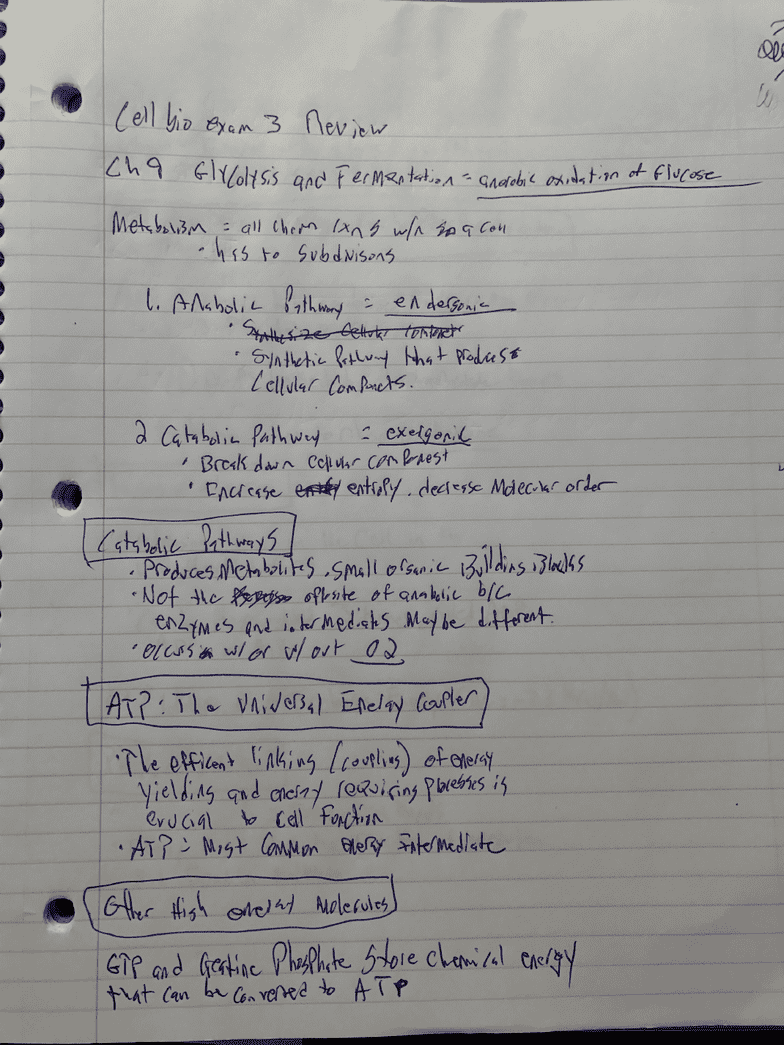 Cell bio exam 3 Review
Ch 9 Glycolysis and Fermentation = anarobic oxidation of Glucose
Metabolism = all chem rxns w/n a cell
• has to subdvisons
1. Anabolic Pathway = endergonic
• Synthesize Cellular
• Synthetic Pathway that produces
Cellular Compnets.
2 Catabolic Pathway = exergonic
• Break down cellular componest
• Increase entropy. decrease Molecular order
Catabolic Pathways
• Produces Metabolites. Small organic Building Blocks
• Not the oppsite of anabolic b/c
enzymes and intermediates May be different.
• occurs w/ or w/out O2
ATP: The Universal Energy Coupler
• The efficent linking (coupling) of energy
yielding and energy requiring processes is
crucial to cell function
• ATP = Most Common energy Intermediate
Other High energy Molecules
GTP and Creatine Phosphate Store chemical energy
that can be converted to ATP